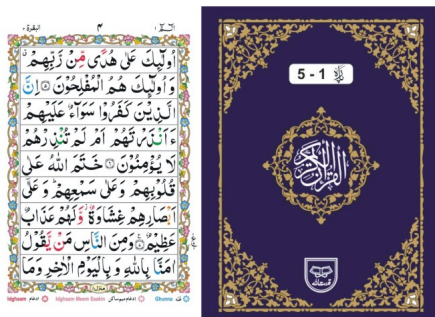 البقرة ٢
٤
الٓمّٓ ١
اُولٰٓئِكَ عَلٰى هُدًى مِّنْ رَّبِّهِمْ
وَاُولٰٓئِكَ هُمُ الْمُفْلِحُوْنَ ۝۵ اِنَّ
الَّذِيْنَ كَفَرُوْا سَوَآءٌ عَلَيْهِمْ
ءَاَنْذَرْتَهُمْ اَمْ لَمْ تُنْذِرْهُمْ
لَا يُؤْمِنُوْنَ ۝۶ خَتَمَ اللّٰهُ عَلٰى
قُلُوْبِهِمْ وَعَلٰى سَمْعِهِمْ وَعَلٰٓى
اَبْصَارِهِمْ غِشَاوَةٌ وَّلَهُمْ عَذَابٌ
عَظِيْمٌ ۝۷ وَمِنَ النَّاسِ مَنْ يَّقُوْلُ
اٰمَنَّا بِاللّٰهِ وَبِالْيَوْمِ الْاٰخِرِ وَمَا
Idghaam ادغام Idghaam Meem Saakin ادغام میم ساکن Ghunna غنہ
پارہ 1 - 5
القرآن الكريم